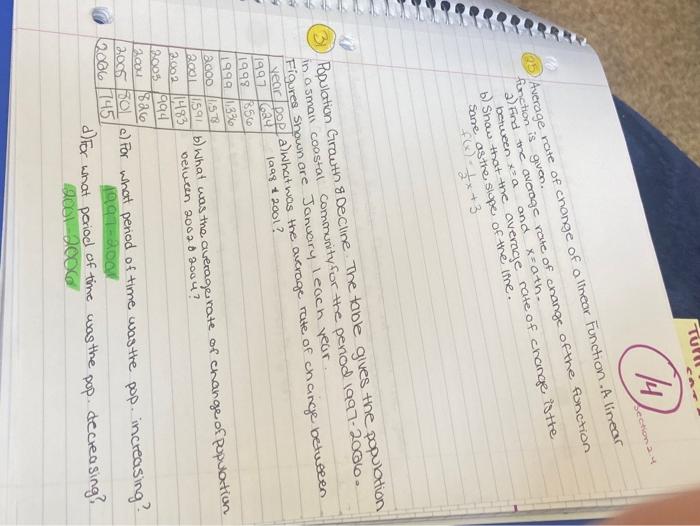 Turn
section 2.4
14
25 Average rate of change of a linear Function. A linear
function is given.
a) Find the average rate of change of the function
between x=a and x=a+h.
b) Show that the average rate of change is the
same as the slope of the line.
f(x) = 1/2 x + 3
31 Population Growth & Decline. The table gives the population
in a small coastal community for the period 1997-2006.
Figures shown are January 1 each year.
year pop
1997 624
1998 856
1999 1,336
2000 1,578
2001 1,591
2002 1,483
2003 994
2004 826
2005 801
2006 745
a) What was the average rate of change between
1998 & 2001?
b) What was the average rate of change of population
between 2002 & 2004?
c) For what period of time was the pop. increasing?
1997-2001
d) For what period of time was the pop. decreasing?
2001-2006